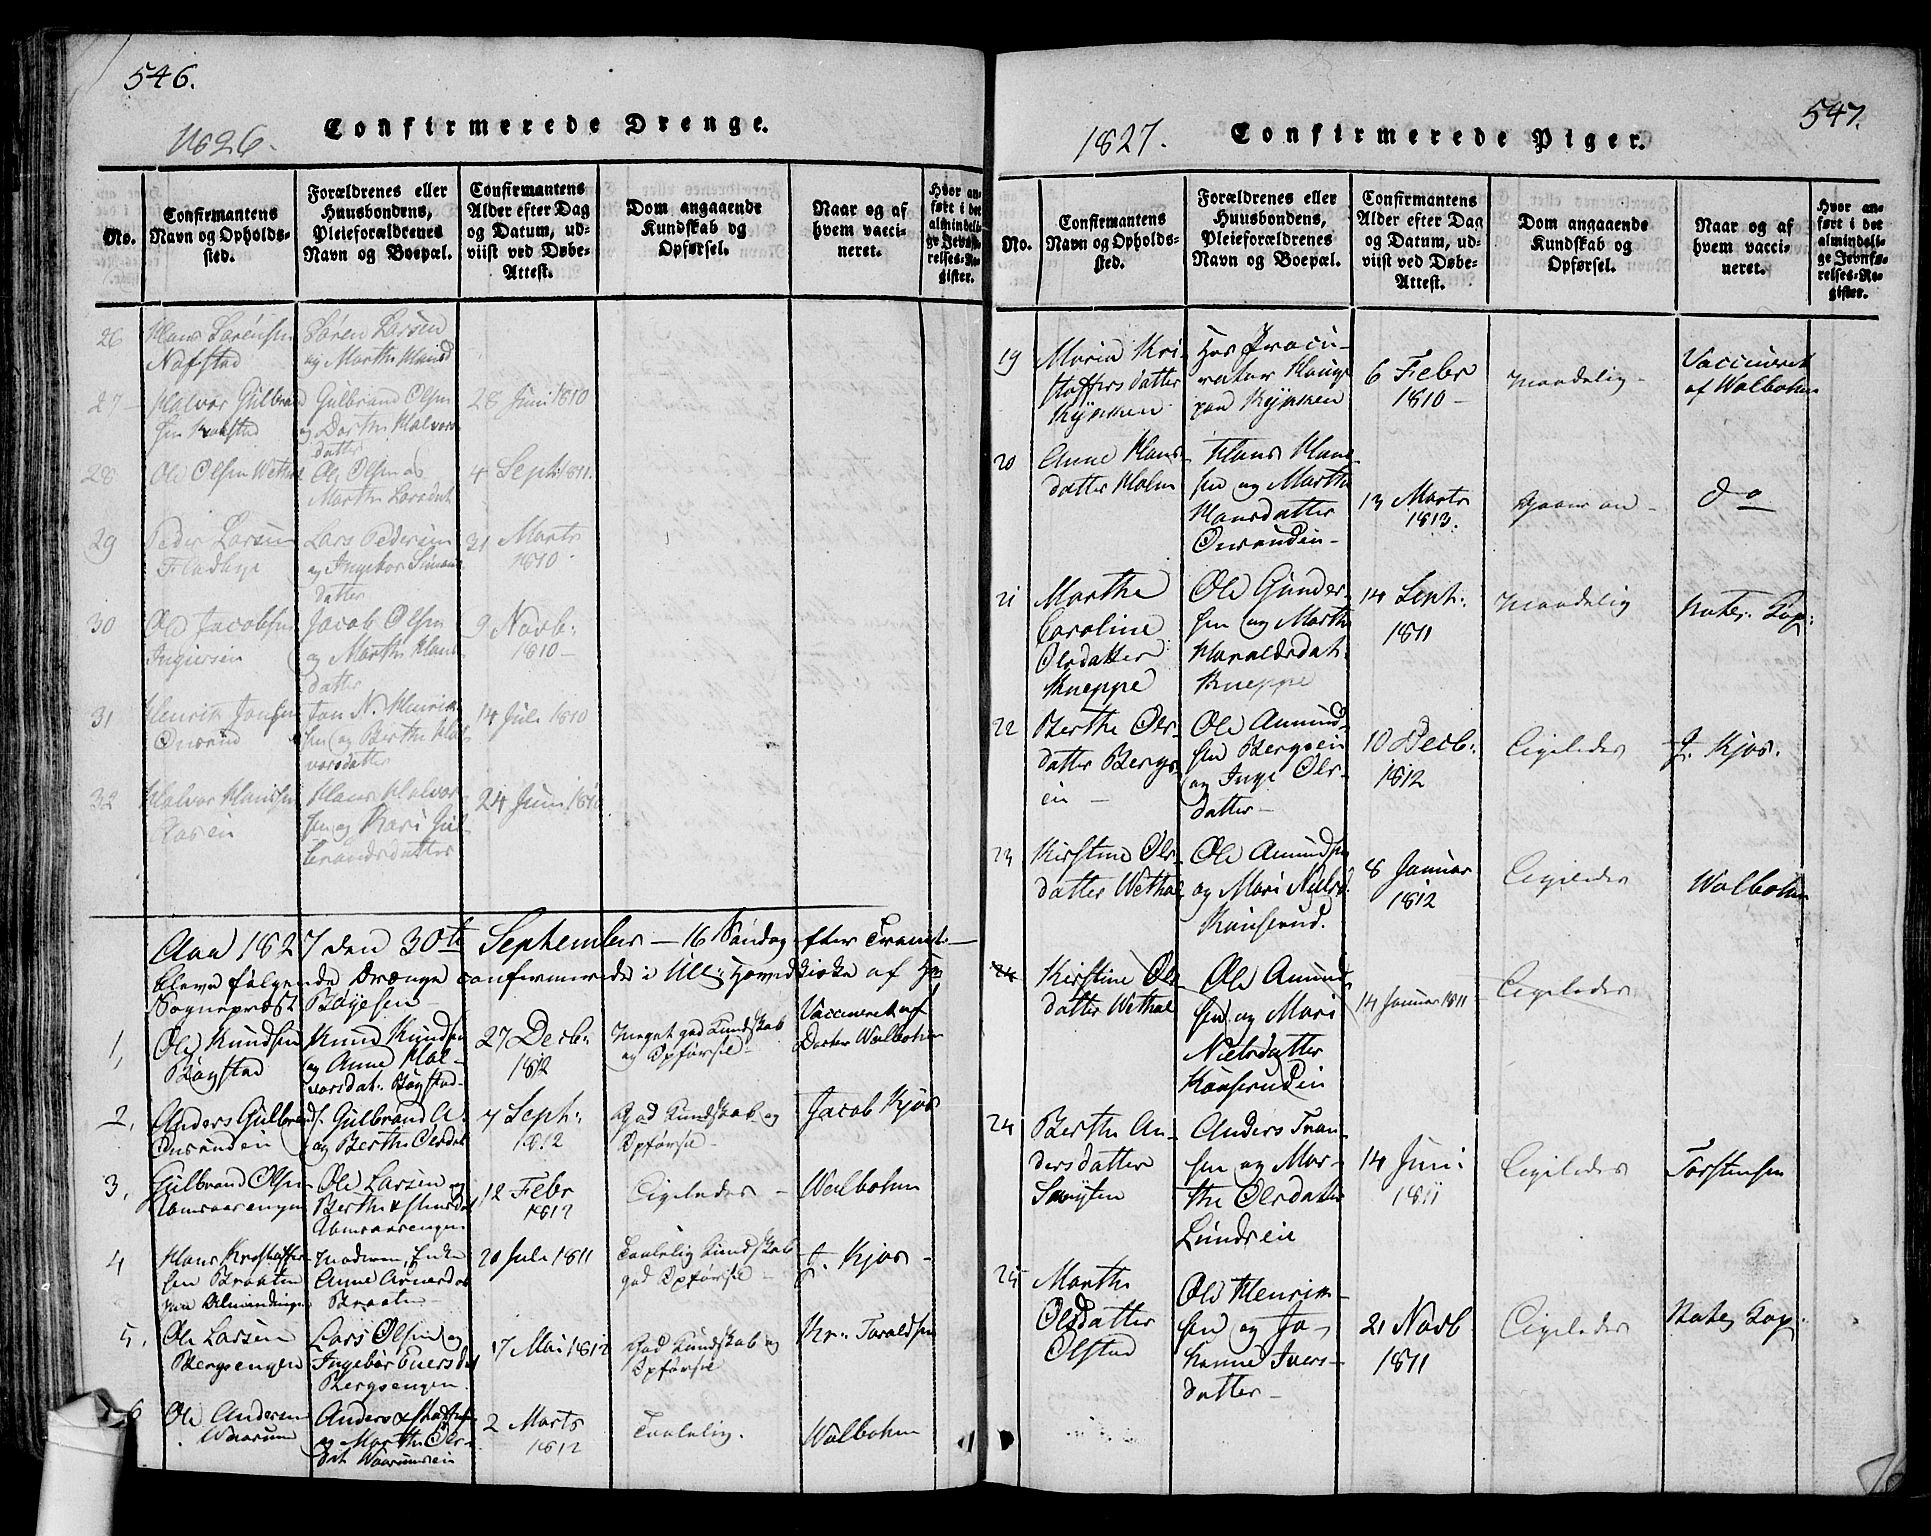 546.
1826.
Confirmerede Drenge.
No.
Confirmantens
Navn og Opholds-
sted.
Forældrenes eller
Huusbondens,
Pleieforældrenes
Navn og Boepæl.
Confirmantens
Alder efter Dag
og Datum, ud-
viist ved Døbe-
Attest.
Dom angaaende
Kundskab og
Opførsel.
Naar og af
hvem vacci-
neret.
Hvor an-
ført i det
almindeli-
ge Jevnfø-
relses-Re-
gister.
26
Hans Sørensen
Nafstad
Sören Larsen
og Marthe Hansd
27
Halvor Gulbrand
sen
Gulbrand Olsen
og Dorthe Halvors
datter
28 Juni 1810
28
Ole Olsen Wethal
Ole Olsen og
Marthe Larsdat
4 Septb 1811.
29
Peder Larsen
Fladbye
Lars Pedersen
og Ingebor Simens
datter
31 Marts
1810
30
Ole Jacobsen
Ingiersein
Jacob Olsen
og Marthe Hans
datter
9 Novb:
1810
31
Henrik Jonsen
Onsrud
Jon N. Henrik
sen og Berthe Hal
vorsdatter
14 Juli 1810
32
Halvor Hansen
Aasein
Hans Halvor
sen og Kari Gul
brandsdatter
24 Juni 1810
Aaa 1827 den 30te September - 16 Søndag efter Trinit:
bleve følgende Drænge confirmerede i Ull: Hovedkirke af Hr
Sogneprest Bøyesen
1,
Ole Knudsen
Bögstad
Knud Knudsen
og Anne Hal-
vorsdat: Bögstad
27 Decb:
1812
Meget god Kundskab
og Opførsel
Vaccineret af
Docter Walbohm
2,
Anders Gulbrands.
Onsrudein
Gulbrand A.
og Berthe Olsdat
7 Septb:
1812
God Kundskab og
Opførsel
Jacob Kjös
3,
Gulbrand Olsen
Ole Larsen og
Berthe
12 Febr
1812
Ligeledes
Walbohm
4
Hans Kristoffer
sen Braaten
ved Almindingen
Moderen, Enke
Anne Arnesdat
Braaten
20 Juli 1811
Taalelig Kundskab
god Opførsel
J. Kjös
5.
Ole Larsen
Bergsengen
Lars Olsen og
Ingebör Evensdat
Bergsengen
17 Mai 1812
God Kundskab og
Opførsel
Kr: Taraldsen
6
Ole Andersen
Waarum
Anders
og Marthe Ols
dat Waarumsein
2 Marts
1812
Taalelig.
Walbohm
547.
1827.
Confirmerede Piger.
No.
Confirmantens
Navn og Opholds-
sted.
Forældrenes eller
Huusbondens,
Pleieforældrenes
Navn og Boepæl.
Confirmantens
Alder efter Dag
og Datum, ud-
viist ved Døbe-
Attest.
Dom angaaende
Kundskab og
Opførsel.
Naar og af
hvem vacci-
neret.
Hvor an-
ført i det
almindeli-
ge Jevnfø-
relses-Re-
gister.
19
Maria Kri-
stoffersdatter
Kykken
Hos Procu-
rator Hauge
paa Kykken
6 Febr
1810
Maadelig
Vaccineret
af Walbohm
20
Anne Hans-
datter Holm
Hans Han-
sen og Marthe
Hansdatter
Onsrudein
13 Marts
1813.
Gaaer an
do
21
Marthe
Caroline
Olsdatter
Kneppe
Ole Gunder-
sen og Marthe
Haraldsdat.
Kneppe
14 Septb:
1811
Maadelig
Nat: Kop:
22
Berthe Ols-
datter Bergs-
ein
Ole Amund-
sen Bergsein
og Inge Ols-
datter
10 Decb:
1812
Ligeledes
J. Kjös.
23
Kirstine Ols-
datter Wethal
Ole Amundsen
og Mari Nielsd.
Konserud.
8 Januar
1812
Ligeledes
Walbohm
24
Kirstine Ols-
datter Wethal
Ole Amund
sen og Mari
Nielsdatter
Konserudein
14 Januar 1811
Ligeledes
24
Berthe An-
dersdatter
Anders Fran-
sen og Mar-
the Olsdatter
Lundsein
14 Juni
1811
Ligeledes
Torstensen
25
Marthe
Olsdatter
Olstad
Ole Henrik-
sen og Jo-
hanne Ivers-
datter
21 Novb
1811
Ligeledes
Nat: Kop: